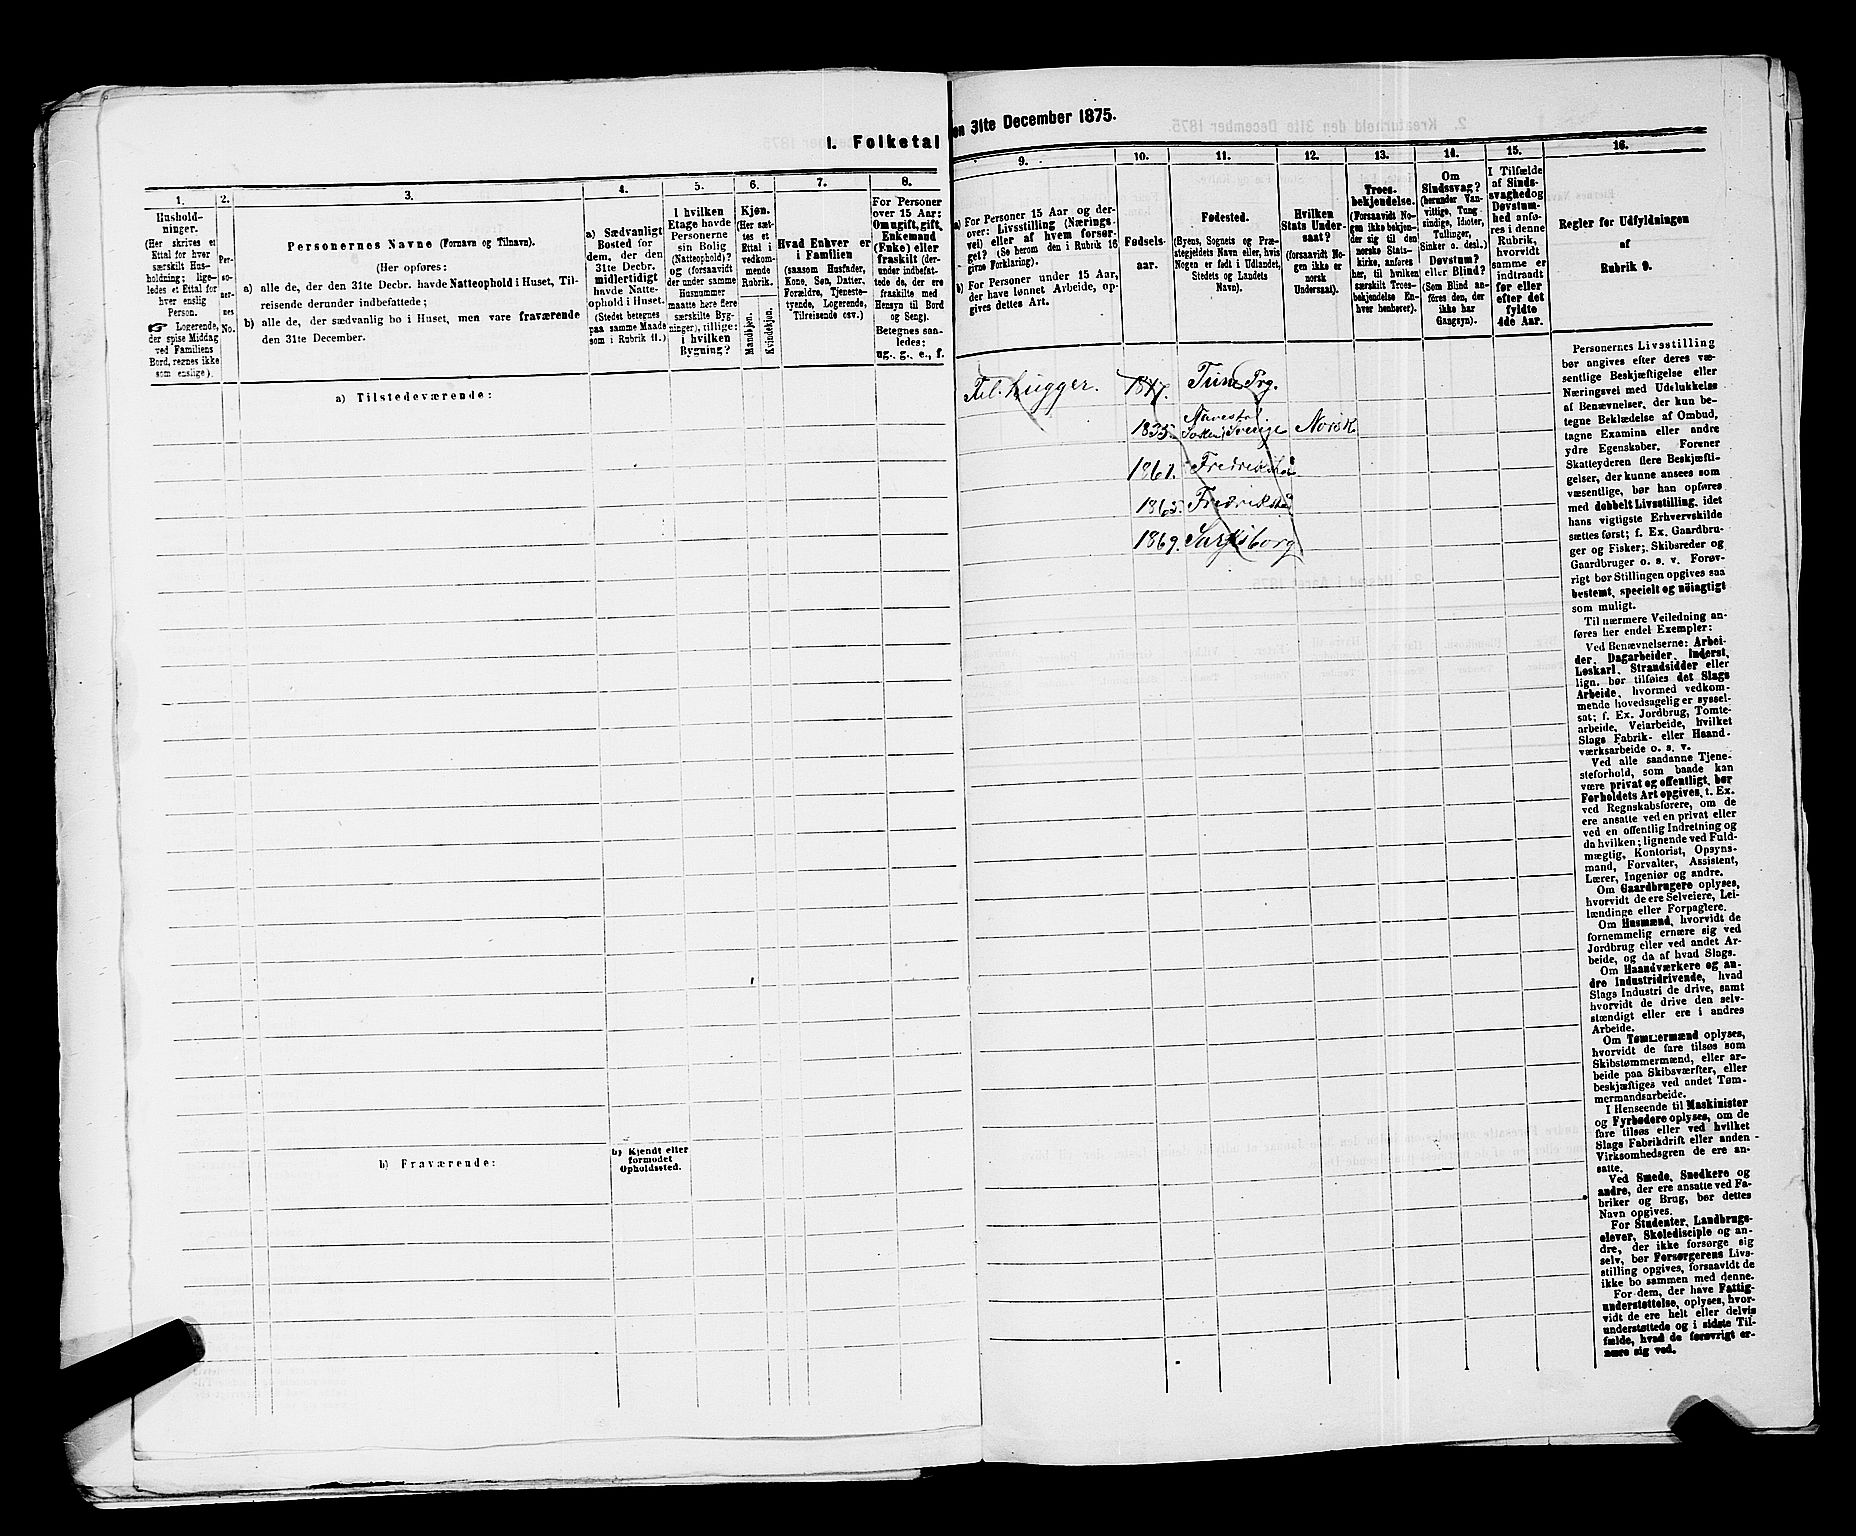 1. Folketal
en 31te December 1875.
1.
2.
3.
4.
5.
6.
7.
8.
Hushold-
ninger.
(Her skrives et
Ettal for hver
særskilt Hus-
holdning; lige-
ledes et Ettal for
hver enslig
Person.
☞ Logerende,
der spise Middag
ved Familiens
Bord, regnes ikke
som enslige).
Per-
so-
ner-
nes
No.
Personernes Navne (Fornavn og Tilnavn).
(Her opføres:
a) alle de, der den 31te Decbr. havde Natteophold i Huset, Til-
reisende derunder indbefattede;
b) alle de, der sædvanlig bo i Huset, men vare fraværende
den 31te December.
a) Sædvanligt
Bosted for
dem, der den
31te Decbr.
midlertidigt
havde Natte-
ophold i Huset.
(Stedet betegnes
paa samme Maade
som i Rubrik 11.)
I hvilken
Etage havde
Personerne
sin Bolig
(Natteophold)?
og (forsaavidt
der under samme
Husnummer
maatte høre flere
særskilte Byg-
ninger), tillige:
i hvilken
Bygning?
Kjøn.
(Her sæt-
tes et
Ettal i
vedkom-
mende
Rubrik.
Mandkjøn.
Kvindekjøn.
Hvad Enhver er
i Familien
(saasom Husfader,
Kone, Søn, Datter,
Forældre, Tjeneste-
tyende, Logerende,
Tilreisende osv.)
For Personer
over 15 Aar:
Om ugift, gift,
Enkemand
(Enke) eller
fraskilt (der-
under indbefat-
tede de, der ere
fraskilte med
Hensyn til Bord
og Seng).
Betegnes saa-
ledes:
ug., g., e., f.
a) Tilstedeværende:
b) Fraværende:
b) Kjendt eller
formodet
Opholdssted.
9.
10.
11.
12.
13.
14.
15.
16.
a) For Personer 15 Aar og der-
over: Livsstilling (Nærings-
vei) eller af hvem forsør-
get? (Se herom den i Rubrik 16
givne Forklaring).
b) For Personer under 15 Aar,
der have lønnet Arbeide, op-
gives dettes Art.
Fødsels-
aar.
Fødested.
(Byens, Sognets og Præ-
stegjeldets Navn eller, hvis
Nogen er født i Udlandet,
Stedets og Landets
Navn).
Hvilken
Stats Under-
saat?
(forsaavidt No-
gen ikke er
norsk
Undersaat).
Troes-
bekjendelse.
(Forsaavidt No-
gen ikke bekjen-
der sig til den
norske Stats-
kirke, anføres
her, til hvilken
særskilt Troes-
bekjendelse En-
hver henhører).
Om
Sindssvag?
(herunder Van-
vittige, Tung-
sindige, Idioter,
Tullinger,
Sinker o. desl.)
Døvstum?
eller Blind?
(Som Blind an-
føres den, der
ikke har
Gangsyn).
I Tilfælde
af Sinds-
svaghed og
Døvstum-
hed anfø-
res i denne
Rubrik,
hvorvidt
samme er
indtraadt
før eller
efter det
fyldte
4de Aar.
Regler for Udfyldningen
af
Rubrik 9.
1847. Tune Prg.
1835. Sverige Norsk
1861. Fredrikstad
1865. Fredrikstad
1869. Sarpsborg
Personernes Livsstilling
bør angives efter deres væ-
sentlige Beskjæftigelse eller
Næringsvei med Udelukkelse
af Benævnelser, der kun be-
tegne Beklædelse af Ombud,
tagne Examina eller andre
ydre Egenskaber. Forener
Skatteyderen flere Beskjæfti-
gelser, der kunne ansees som
væsentlige, bør han opføres
med dobbelt Livsstilling, idet
hans vigtigste Erhvervskilde
sættes først; f. Ex. Gaardbru-
ger og Fisker; Skibsreder og
Gaardbruger o. s. v. Forøv-
rigt bør Stillingen opgives saa
bestemt, specielt og nøiagtigt
som muligt.
Til nærmere Veiledning an-
føres her endel Exempler:
Ved Benævnelserne: Arbei-
der, Dagarbeider, Inderst,
Løskarl, Strandsidder eller
lign. bør tilføies det Slags
Arbeide, hvormed vedkom-
mende hovedsagelig er syssel-
sat; f. Ex. Jordbrug, Tomte-
arbeide, Veiarbeide, hvilket
Slags Fabrik- eller Haand-
værksarbeide o. s. v.
Ved alle saadanne Tjene-
steforhold, som baade kan
være privat og offentligt, bør
Forholdets Art opgives, t. Ex.
ved Regnskabsførere, om de
ere ansatte ved en privat eller
ved en offentlig Indretning og
da hvilken; lignende ved Fuld-
mægtig, Kontorist, Opsyns-
mand, Forvalter, Assistent,
Lærer, Ingeniør og andre.
Om Gaardbrugere oplyses,
hvorvidt de ere Selveiere, Lei-
lændinge eller Forpagtere.
Om Husmænd, hvorvidt de
fornemmelig ernære sig ved
Jordbrug eller ved andet Ar-
beide, og da af hvad Slags.
Om Haandværkere og an-
dre Industridrivende, hvad
Slags Industri de drive, samt
hvorvidt de drive den selv-
stændigt eller ere i andres
Arbeide.
Om Tømmermænd oplyses,
hvorvidt de fare tilsøs som
Skibstømmermænd, eller ar-
beide paa Skibsværfter, eller
beskjæftiges ved andet Tøm-
mermandsarbeide.
I Henseende til Maskinister
og Fyrbødere oplyses, om de
fare tilsøs eller ved hvilket
Slags Fabrikdrift eller anden
Virksomhedsgren de ere an-
satte.
Ved Smede, Snedkere og
andre, der ere ansatte ved Fa-
briker og Brug, bør dettes
Navn opgives.
For Studenter, Landbrugs-
elever, Skoledisciple og an-
dre, der ikke forsørge sig
selv, bør Forsørgerens Livs-
stilling opgives, forsaavidt de
ikke bo sammen med denne.
For dem, der have Fattig-
understøttelse, oplyses, hvor-
vidt de ere helt eller delvis
understøttede og i sidste Til-
fælde, hvad de forøvrigt er-
nære sig ved.